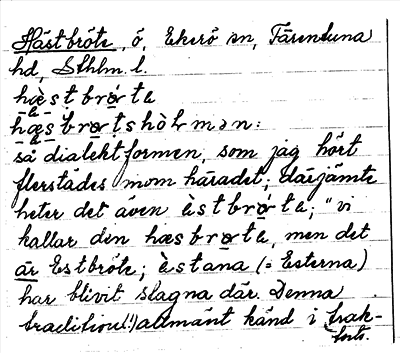 Hästbröte, ö, Ekerö sn, Färentuna
hd, Sthlm. l.
hèstbrǿte
hæsbrǿtshòlmən:
så dialektformen, som jag hört
flerstädes inom häradet; därjämte
heter det även èstbrǿte; "vi
kallar den hæsbrǿte, men det
är Estbröte; èstana (= Esterna)
har blivit slagna där. Denna
tradition(!) allmänt känd i trak-
forts.